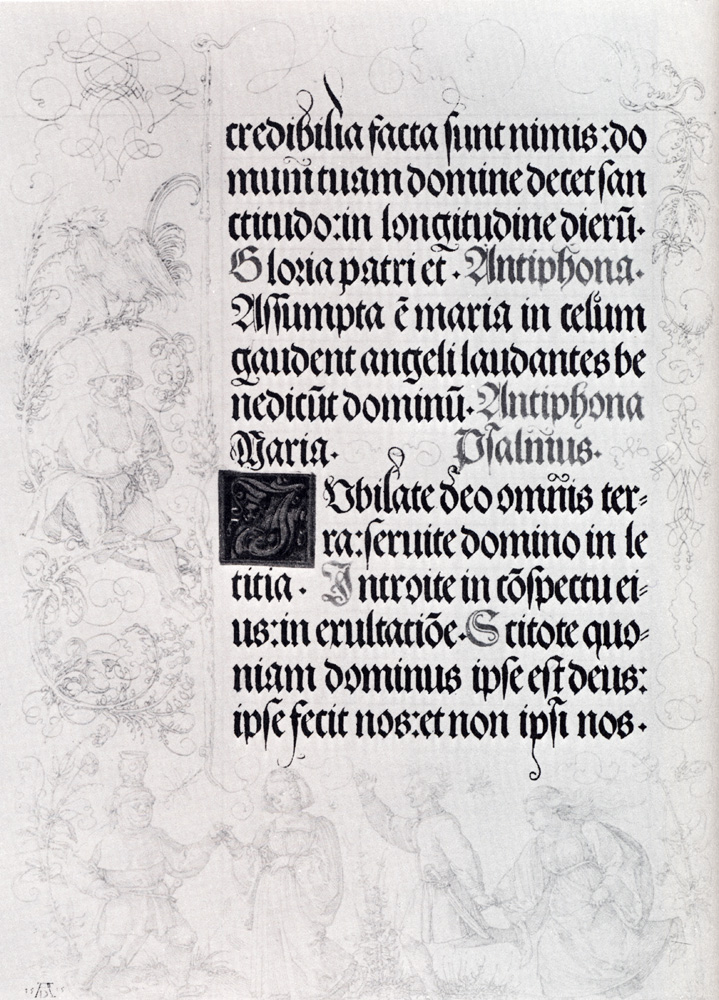 credibilia facta sunt nimis: do
mum̄ tuam domine decet san
ctitudo: in longitudine dierū.
Gloria patri et. Antiphona.
Assumpta ē maria in celum
gaudent angeli laudantes be
nedicūt dominū. Antiphona
Maria. Psalmus.
IVbilate deo omnis ter⸗
ra: seruite domino in le
titia. Introite in cōspectu ei⸗
us: in exultatiōe. Scitote quo⸗
niam dominus ipse est deus:
ipse fecit nos: et non ipsi nos.
15 AD 15